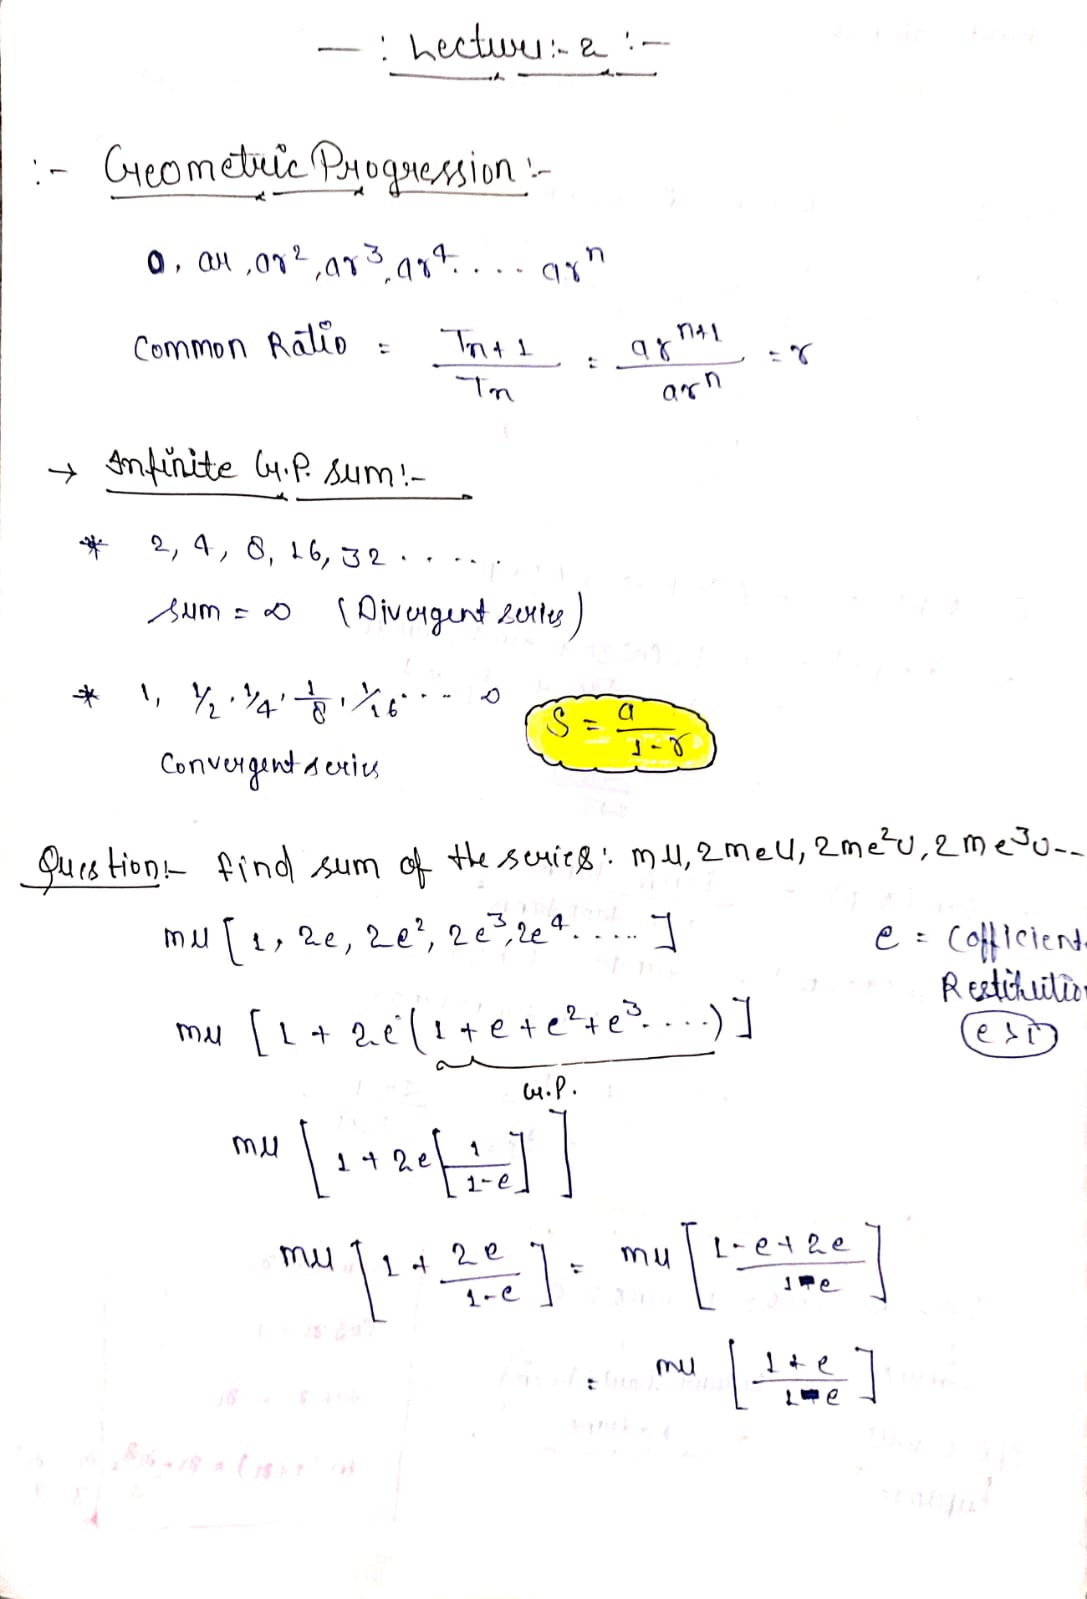 — : Lecture:- 2 :-
:- Geometric Progression :-
a, ar, ar², ar³, ar⁴. . . . arⁿ
Common Ratio = Tn+1 / Tn = arⁿ⁺¹ / arⁿ = r
→ Infinite G.P. sum:-
* 2, 4, 8, 16, 32 . . . . .
sum = ∞ (Divergent series)
* 1, 1/2, 1/4, 1/8, 1/16 . . . - ∞
S = a / 1-r
Convergent series
Question:- find sum of the series: mu, 2meu, 2me²u, 2me³u--
mu [1, 2e, 2e², 2e³, 2e⁴. . . . . ]
e = Cofficient
Restitution
mu [1 + 2e (1 + e + e² + e³. . . .)]
G.P.
mu [1 + 2e [1 / 1-e]]
mu [1 + 2e / 1-e] = mu [1-e+2e / 1-e]
= mu [1+e / 1-e]